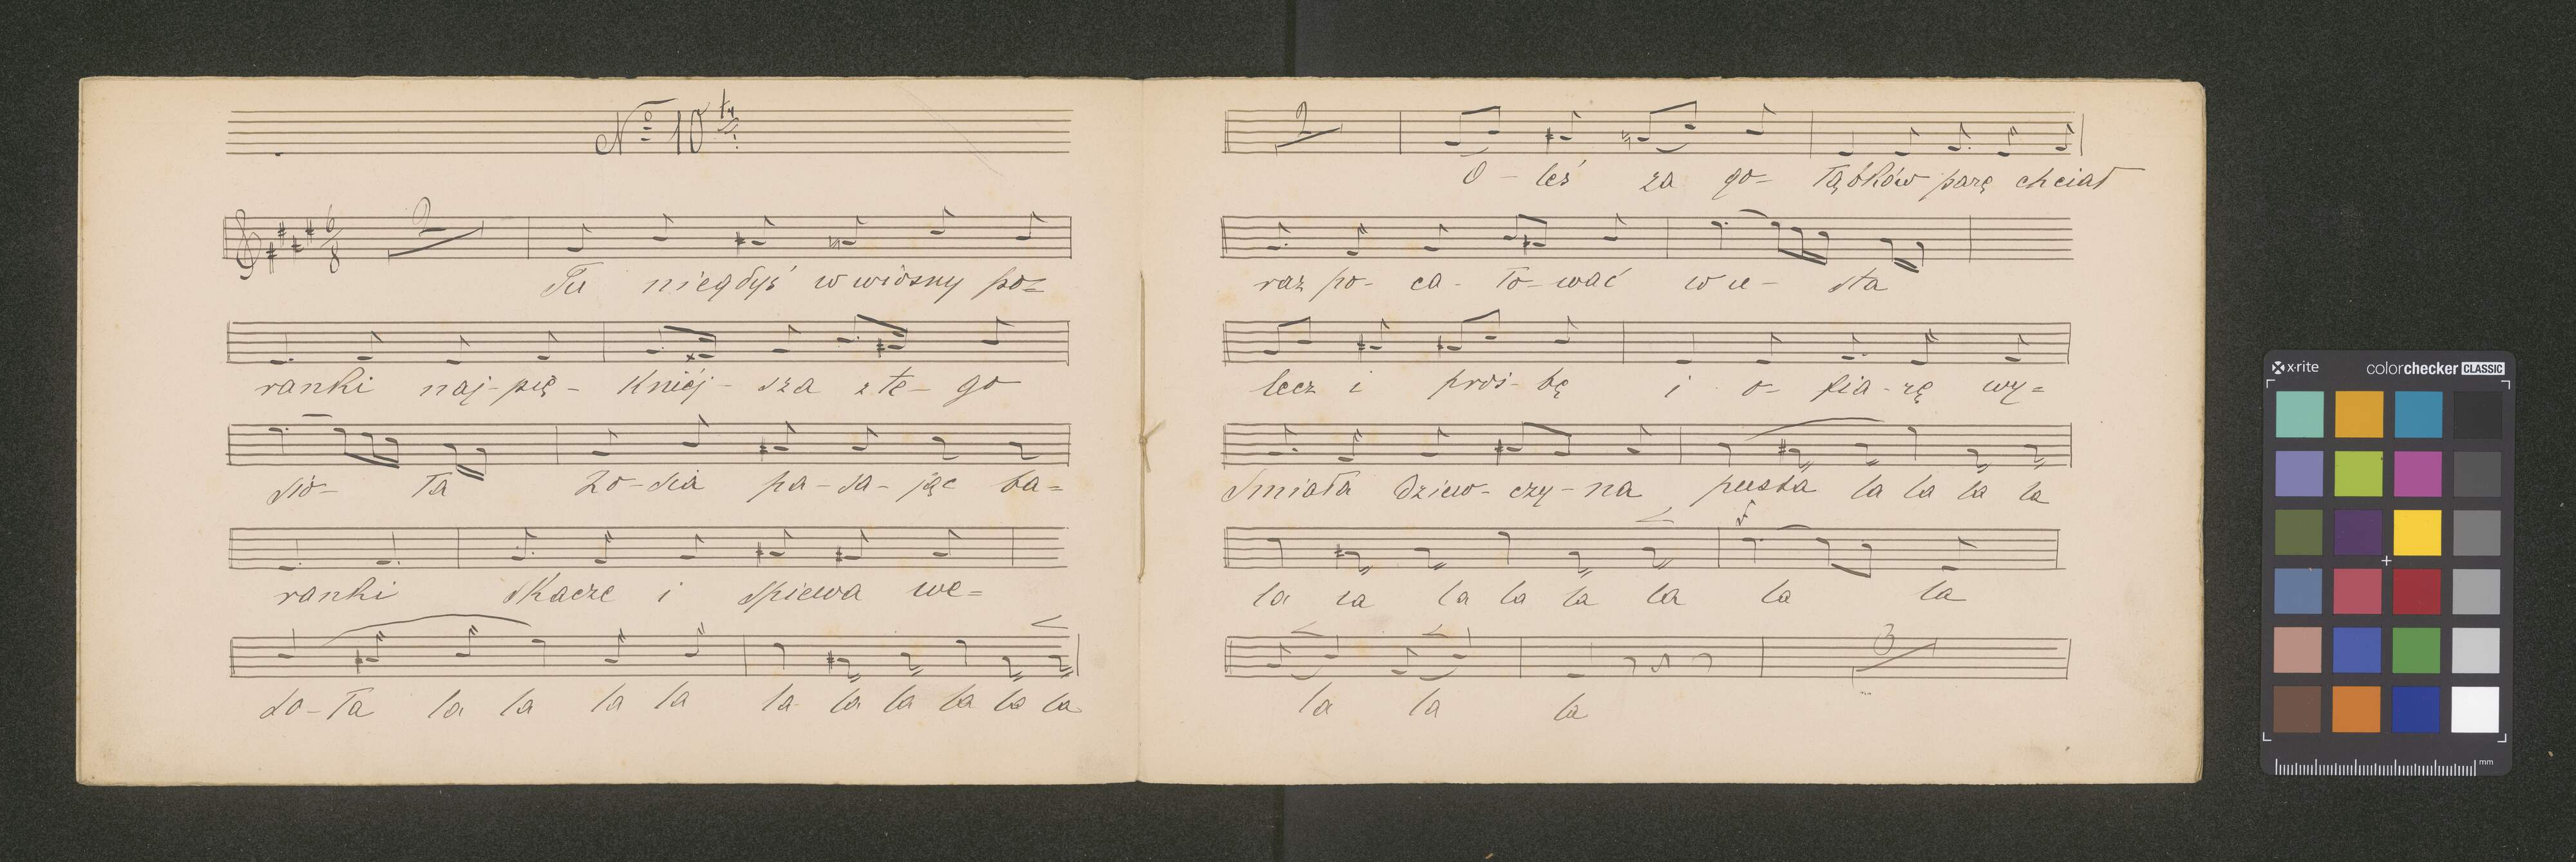 № 10ty.
2
6/8
Tu niegdyś w wiosny po=
ranki naj-pię- kniéj- sza z te- go
sio- ła Zo-sia pa-sa-jąc ba=
ranki skacze i śpiewa we=
so-ła la la la la la la la la la la
2
O-leś za go- łąbków parę chciał
raz po- ca- ło-wać w u- sta
lecz i proś-bę i o- fia-rę wy=
śmiała dziew-czy-na pusta la la la la
f
la la la la la la la la
3
la la la
x·rite colorchecker CLASSIC
mm